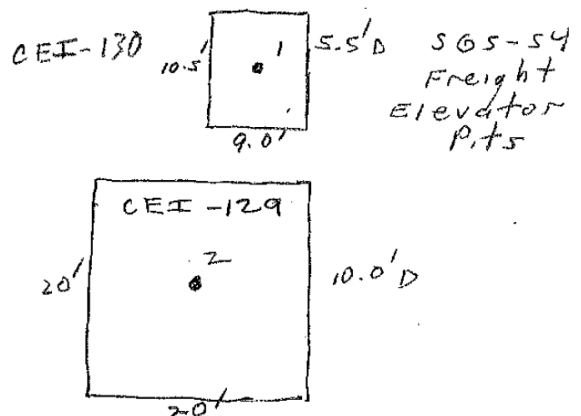 CEI-130
10.5'
1
5.5' D
9.0'
SGS-54
Freight
Elevator
Pits
CEI-129
2
20'
10.0' D
20'